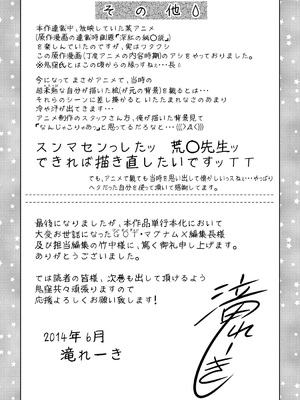 その他
本作連載中、放映していた某アニメ
(原作漫画の連載時副題『深紅の純〇談』)
を楽しんでいたのですが、実はワタクシ
この原作漫画(丁度アニメの内容時期)のアシをやっておりました。
※鬼窪氏とはこの頃からの縁っすね…長い
今になってまさかアニメで、当時の
超未熟な自分が描いた絵(が元の背景)を観るとは…
それらのシーンに差し掛かるといたたまれなさのあまり
冷や汗が出てきます…
アニメ制作のスタッフさん方、俺が描いた背景見て
『なんじゃこりゃぁっ』て思ってるだろなと…
スンマセンっしたッ 荒〇先生ッ
できれば描き直したいですッTT
でも、アニメで観ても当時を思い出して懐かしいっスね…やっぱり
ヘタだった自分を使って頂いて感謝してます。
最後になりましたが、本作品単行本化において
大変お世話になった・マグナム×編集長様
及び担当編集の竹中様に、篤く御礼申し上げます。
ありがとうございました。
では読者の皆様、次巻も出して頂けるよう
鬼窪共々頑張りますので
応援よろしくお願い致します!
2014年6月
滝れーき
滝れーき